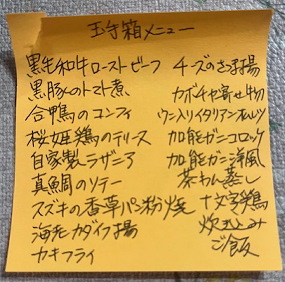 玉手箱メニュー
黒毛和牛ローストビーフ
黒豚のトマト煮
合鴨のコンフィ
桜姫鶏のテリース
自家製ラザニア
真鯛のソテー
スズキの香草パン粉焼
海老カダイフ揚
カキフライ
チーズのささ揚
カボチャ寄せ物
ウニ入りイタリアンオムレツ
加能ガニコロッケ
加能ガニ洋風
茶わん蒸し
十文字鶏
炊き込み
ご飯